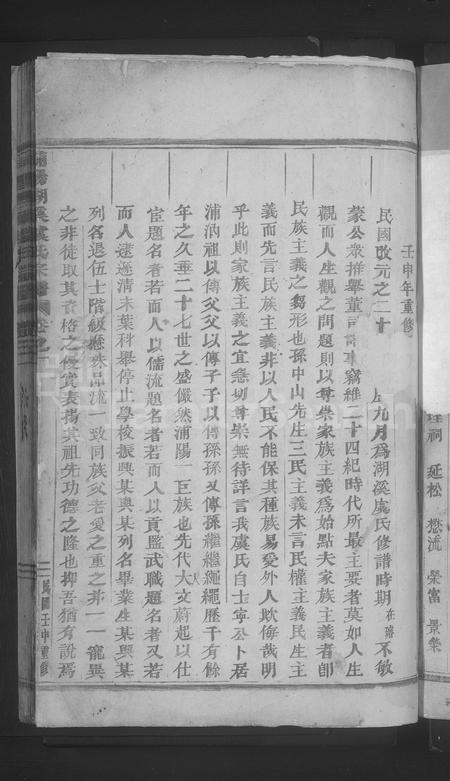 壬申年重修
民國改元之二十 九月為湖溪虞氏修譜時期在譜不敏
蒙公衆推舉董 譜事竊維二十四紀時代所最主要者莫如人生
觀而人生觀之問題則以尊崇家族主義為始點夫家族主義者即
民族主義之芻形也孫中山先生三民主義未言民權主義民生主
義而先言民族主義非以人民不能保其種族易受外人欺侮哉明
乎此則家族主義之宜急切尊崇無待詳言我虞氏自士寧公卜居
浦汭祖以傳父父以傳子子以傳孫孫又傳孫繼繼繩繩歷千有餘
年之久垂二十七世之盛儼然浦陽一巨族也先代人文蔚起以仕
宦題名者若而人以儒流題名者若而人以貢監武職題名者又若
而人逮遜清末葉科舉停止學校振興某與某列名畢業生某與某
列名退伍士階級懸殊品流一致同族父老愛之重之弗一一寵異
之非徒取其資格之優實表揚其祖先功德之隆也抑吾猶有說焉
湖溪虞氏宗譜 卷之
二民國壬申重修
理祠 延松 懋流 榮富 景燊